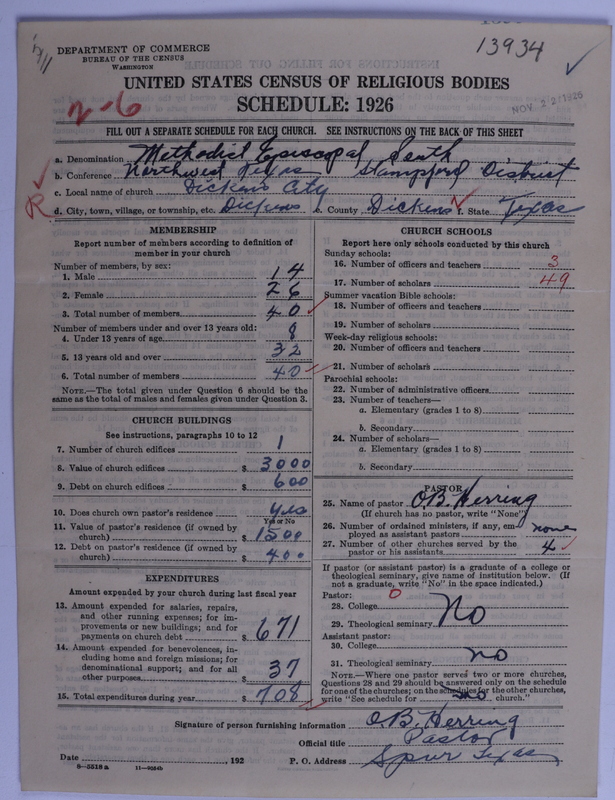 13934
DEPARTMENT OF COMMERCE
BUREAU OF THE CENSUS
WASHINGTON
UNITED STATES CENSUS OF RELIGIOUS BODIES
SCHEDULE: 1926
NOV 22 1926
2-6
FILL OUT A SEPARATE SCHEDULE FOR EACH CHURCH. SEE INSTRUCTIONS ON THE BACK OF THIS SHEET
a. Denomination Methodist Episcopal South
b. Conference Northwest Texas Stampford District
c. Local name of church Dickens City
R
d. City, town, village, or township, etc. Dickens e. County Dickens f. State Texas
MEMBERSHIP
Report number of members according to definition of
member in your church
Number of members, by sex:
1. Male 14
2. Female 26
3. Total number of members 40
Number of members under and over 13 years old:
4. Under 13 years of age 8
5. 13 years old and over 32
6. Total number of members 40
NOTE.—The total given under Question 6 should be the
same as the total of males and females given under Question 3.
CHURCH BUILDINGS
See instructions, paragraphs 10 to 12
7. Number of church edifices 1
8. Value of church edifices $ 3000
9. Debt on church edifices $ 600
10. Does church own pastor's residence yes
Yes or No
11. Value of pastor's residence (if owned by
church) $ 1500
12. Debt on pastor's residence (if owned by
church) $ 400
EXPENDITURES
Amount expended by your church during last fiscal year
13. Amount expended for salaries, repairs,
and other running expenses; for im-
provements or new buildings; and for
payments on church debt $ 671
14. Amount expended for benevolences, in-
cluding home and foreign missions; for
denominational support; and for all
other purposes $ 37
15. Total expenditures during year $ 708
CHURCH SCHOOLS
Report here only schools conducted by this church
Sunday schools:
16. Number of officers and teachers 3
17. Number of scholars 49
Summer vacation Bible schools:
18. Number of officers and teachers
19. Number of scholars
Week-day religious schools:
20. Number of officers and teachers
21. Number of scholars
Parochial schools:
22. Number of administrative officers
23. Number of teachers—
a. Elementary (grades 1 to 8)
b. Secondary
24. Number of scholars—
a. Elementary (grades 1 to 8)
b. Secondary
PASTOR
25. Name of pastor O.B. Herring
(If church has no pastor, write "None")
26. Number of ordained ministers, if any, em-
ployed as assistant pastors none
27. Number of other churches served by the
pastor or his assistants 4
If pastor (or assistant pastor) is a graduate of a college or
theological seminary, give name of institution below. (If
not a graduate, write "No" in the space indicated.)
Pastor: 0
28. College
29. Theological seminary No
Assistant pastor:
30. College
31. Theological seminary no
NOTE.—Where one pastor served two or more churches,
Questions 28 and 29 should be answered only on the schedule
for one of the churches; on the schedules for the other churches,
write "See schedule for church."
Signature of person furnishing information O.B. Herring
Official title Pastor
Date , 192 P. O. Address Spur Texas
8—5518 a 11—9054b